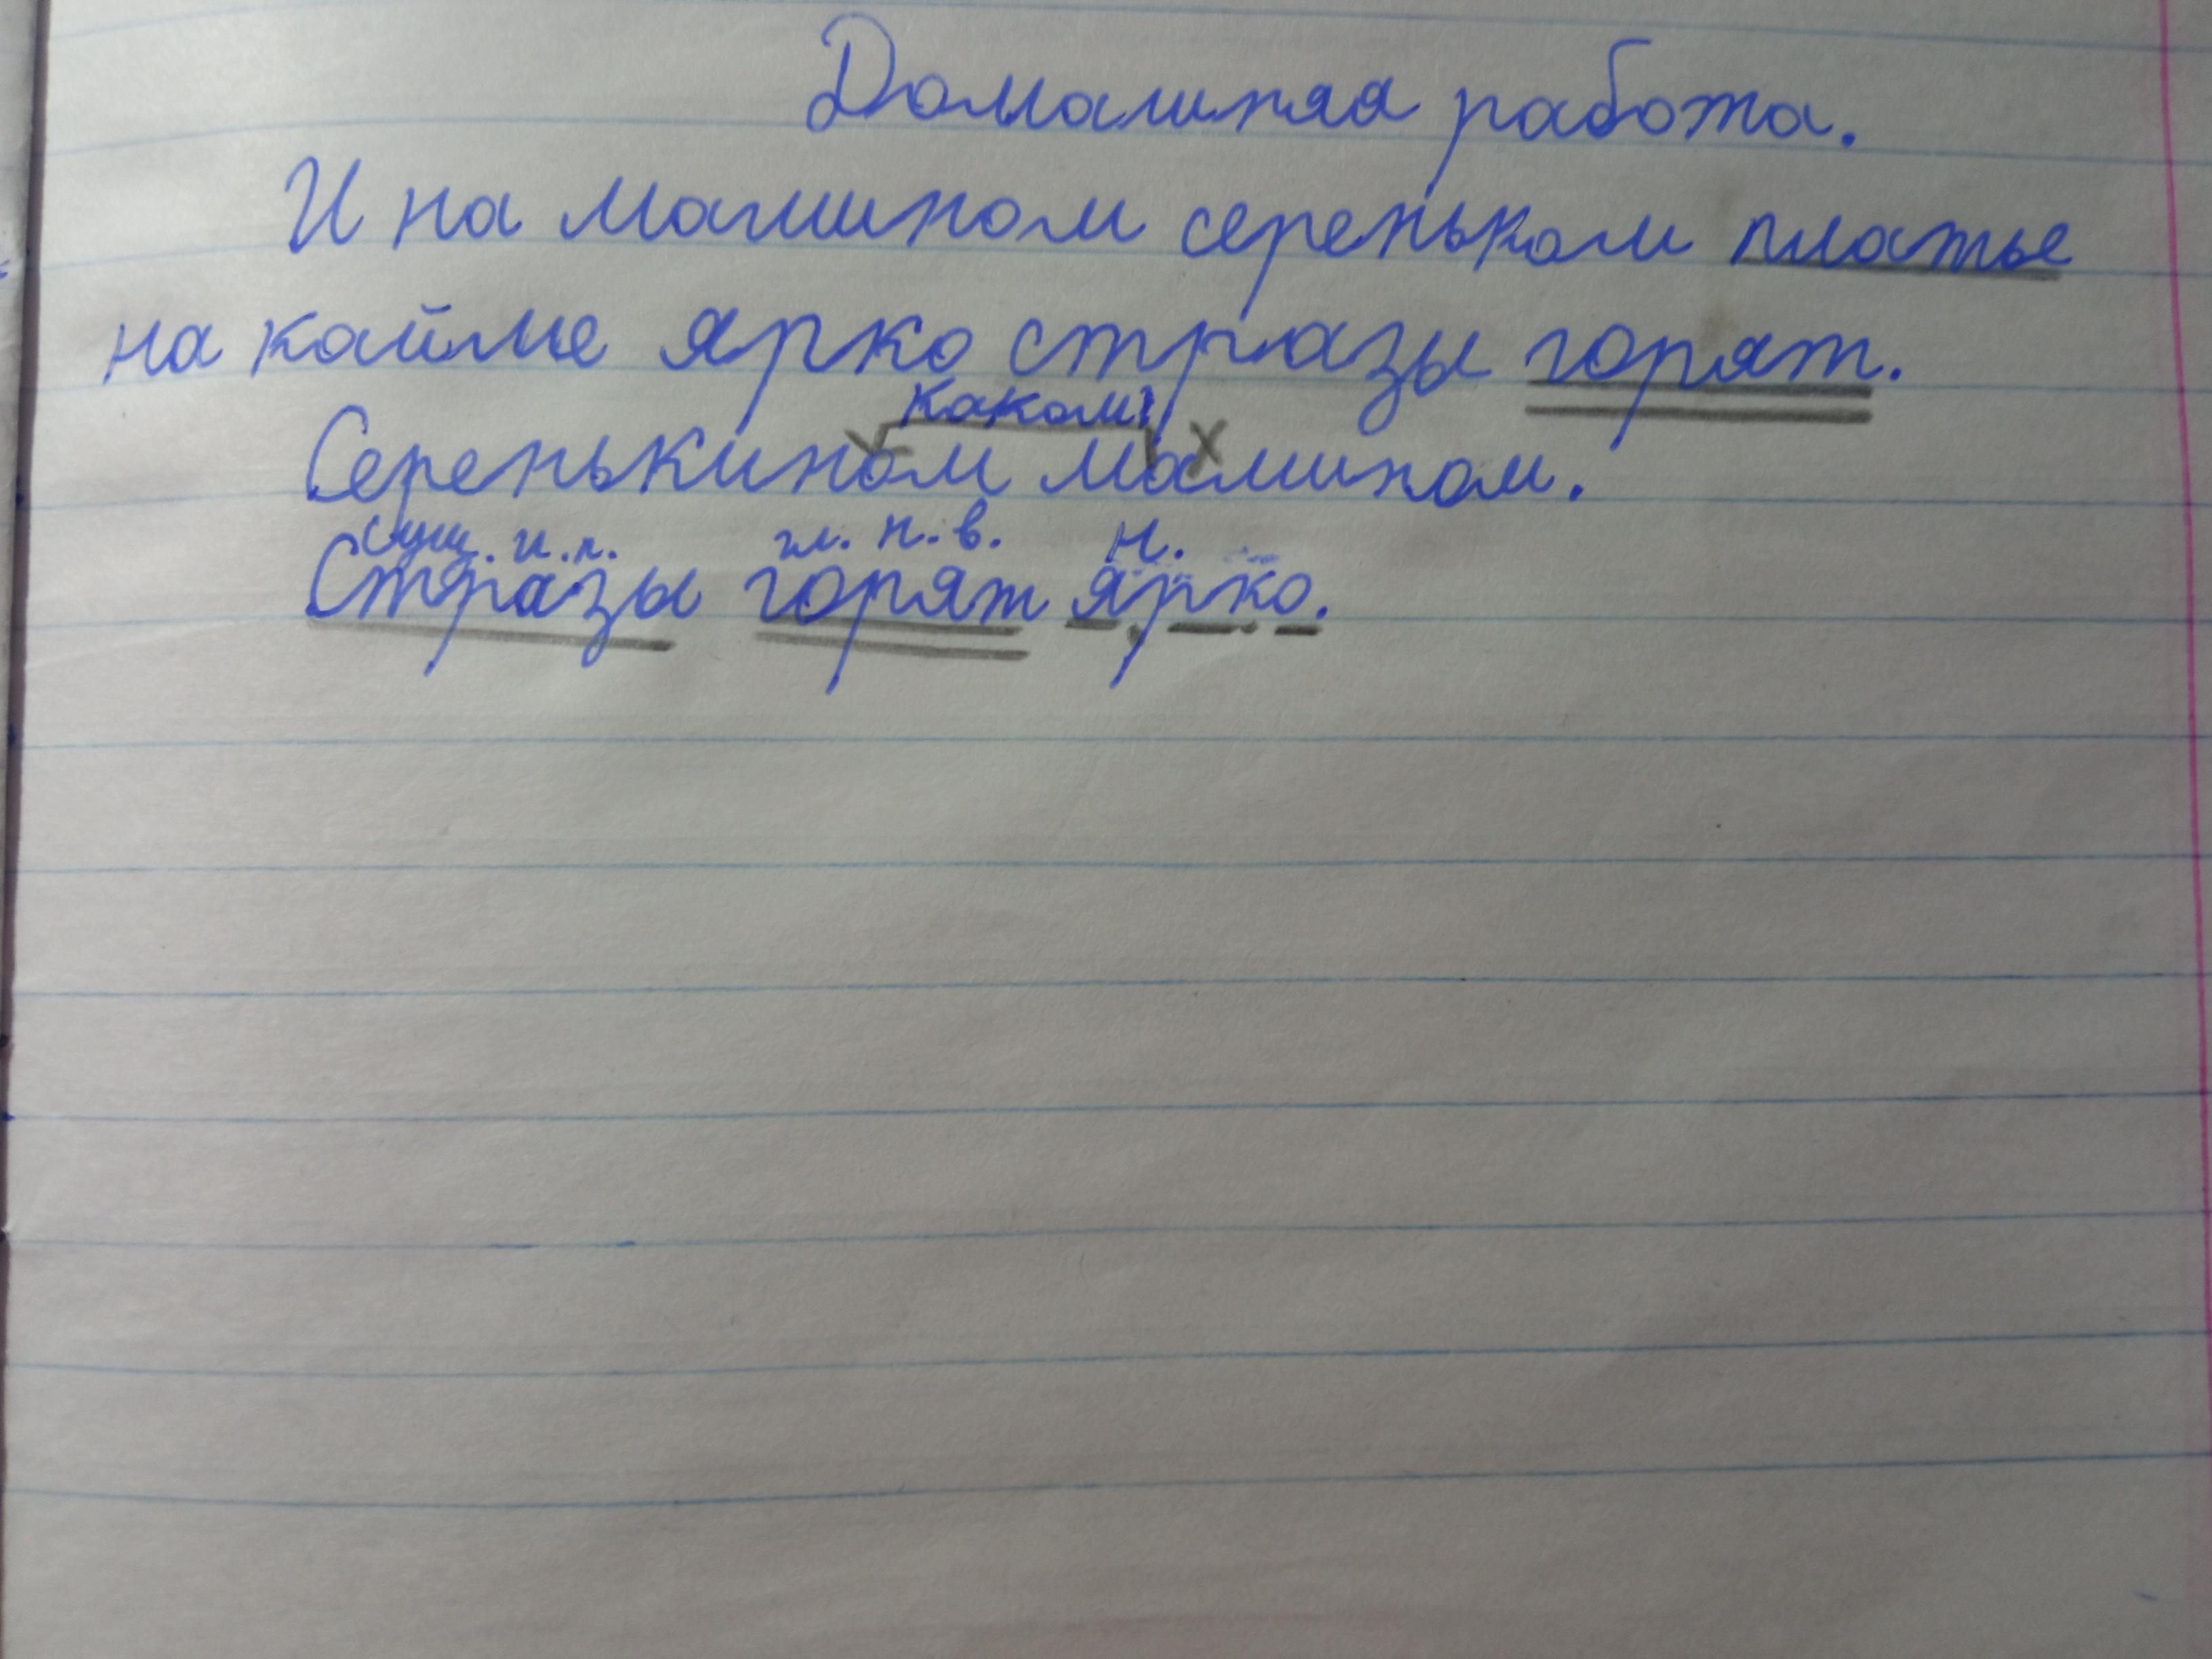 Домашняя работа.
И на машином сереньком платье
на кайме ярко стразы горят.
каком?
х
Серенькином мамином.
сущ. и.п. гл. н.в. н.
Стразы горят ярко.